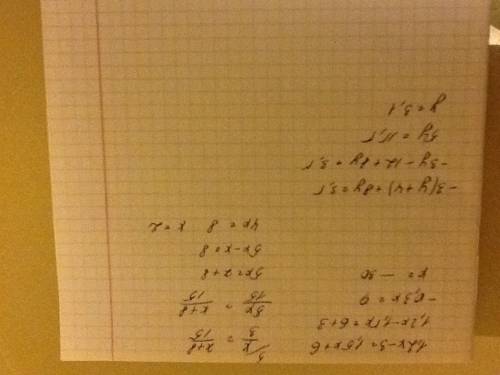 1,2x-3=1,5x+6
1,2x-1,5x=6+3
-0,3x=9
x = — 30
5/ x/3 = x+8/15
5x/15 = x+8/15
5x=x+8
5x-x=8
4x=8 x=2
-3(y+4)+8y=3,5
-3y-12+8y=3,5
5y=15,5
y=3,1